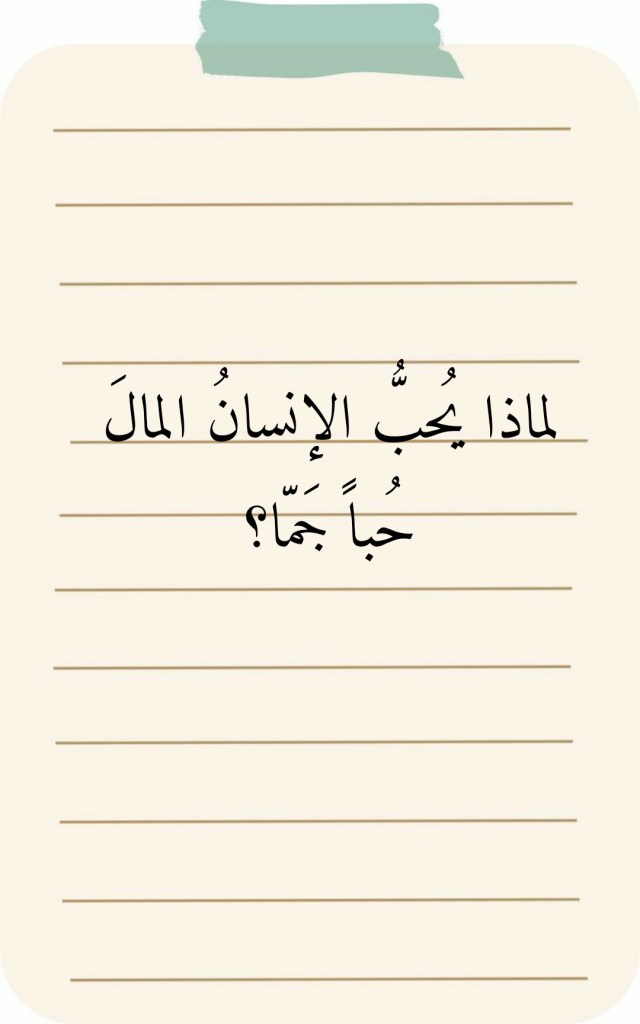 لماذا يُحبُّ الإنسانُ المالَ
حُباً جَمّا؟